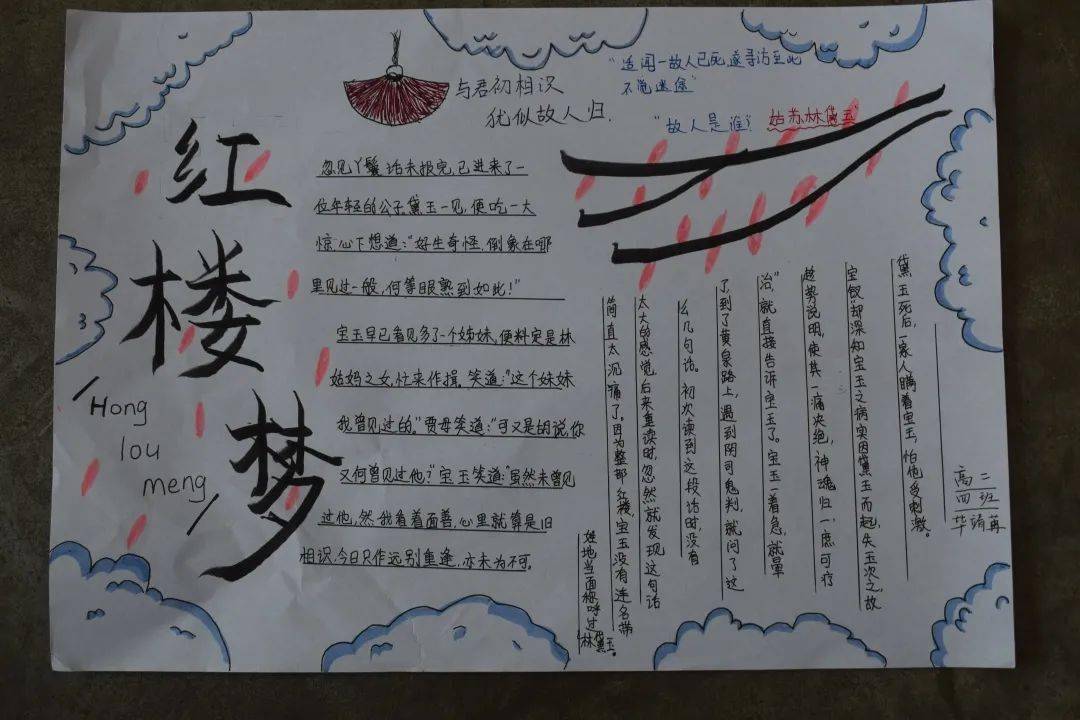 红
楼
梦
Hong
lou
meng
与君初相识
犹似故人归.
"适闻一故人已死,遂寻访至此
不觉迷途"
"故人是谁? 姑苏林黛玉"
忽见丫鬟话未报完,已进来了一
位年轻的公子,黛玉一见,便吃一大
惊,心下想道:"好生奇怪,倒象在哪
里见过一般,何等眼熟到如此!"
宝玉早已看见多了一个姊妹,便料定是林
姑妈之女,忙来作揖,笑道:"这个妹妹
我曾见过的"贾母笑道:"可又是胡说,你
又何曾见过他?"宝玉笑道:"虽然未曾见
过他,然我看着面善,心里就算是旧
相识,今日只作远别重逢,亦未为不可。
黛玉死后,一家人瞒着宝玉,怕他受刺激。
宝钗却深知宝玉之病实因黛玉而起,失玉次之,故
趁势说明,使其一痛决绝,神魂归一,庶可疗
治,"就直接告诉宝玉了。宝玉一着急,就晕
了,到了黄泉路上,遇到阴司鬼判,就问了这
么几句话。初次读到这段话时,没有
太大的感觉,后来重读时,忽然就发现这句话
简直太沉痛了。因为整部红楼,宝玉没有连名带
姓地当面称呼过
"林黛玉"。
高二
四班
华靖